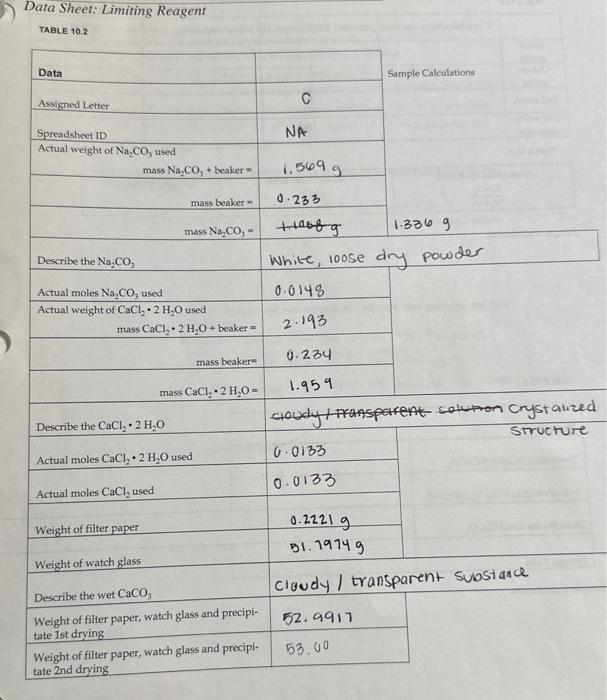 Data Sheet: Limiting Reagent
TABLE 10.2
Data
Sample Calculations
Assigned Letter
C
Spreadsheet ID
NA
Actual weight of Na₂CO₃ used
mass Na₂CO₃ + beaker =
1.569 g
mass beaker =
0.233
mass Na₂CO₃ =
g
1.336 g
Describe the Na₂CO₃
White, loose dry powder
Actual moles Na₂CO₃ used
0.0148
Actual weight of CaCl₂ • 2 H₂O used
mass CaCl₂ • 2 H₂O + beaker =
2.193
mass beaker=
0.234
mass CaCl₂ • 2 H₂O =
1.959
Describe the CaCl₂ • 2 H₂O
cloudy / transparent solution crystalized
structure
Actual moles CaCl₂ • 2 H₂O used
0.0133
Actual moles CaCl₂ used
0.0133
Weight of filter paper
0.2221 g
Weight of watch glass
51.7974 g
Describe the wet CaCO₃
cloudy / transparent substance
Weight of filter paper, watch glass and precipi-
tate 1st drying
52.9917
Weight of filter paper, watch glass and precipi-
tate 2nd drying
53.00